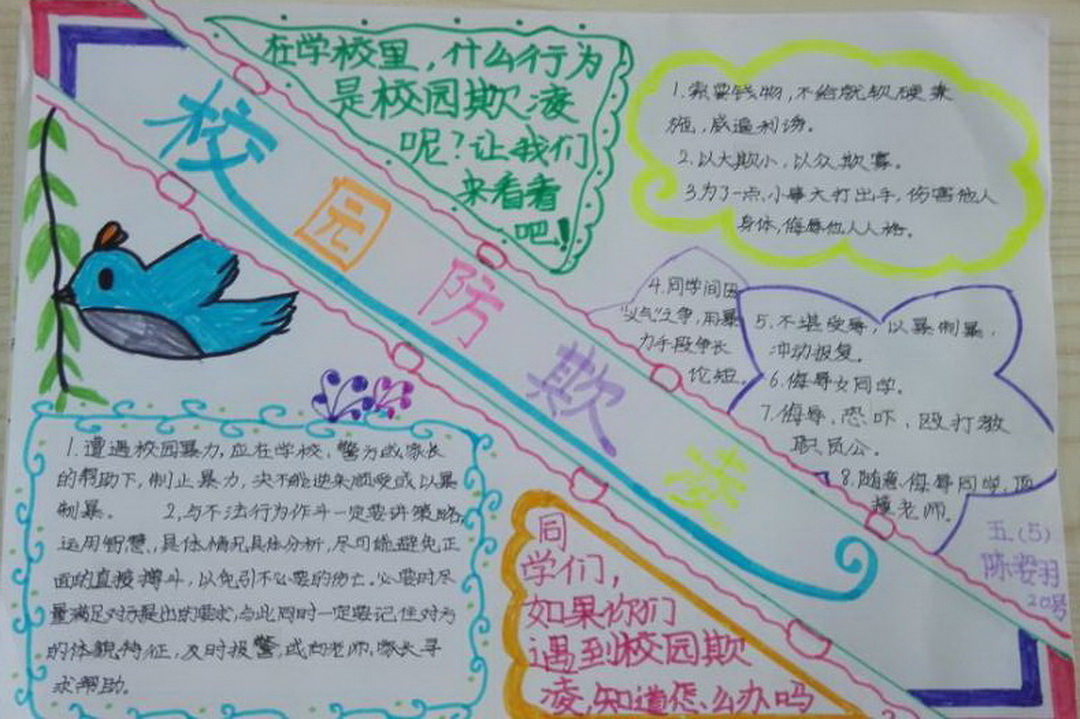 校园防欺凌
在学校里，什么行为
是校园欺凌
呢？让我们
来看看
吧！
1.索要钱物，不给就软硬兼
施，威逼利诱。
2.以大欺小，以众欺寡。
3.为了一点小事大打出手，伤害他人
身体，侮辱他人人格。
4.同学间因
“义气”之争，用暴
力手段争长
论短。
5.不堪受辱，以暴制暴，
冲动报复。
6.侮辱女同学。
7.侮辱、恐吓、殴打教
职员公。
8.随意侮辱同学，顶
撞老师。
五(5)
陈姿羽
20号
1.遭遇校园暴力，应在学校、警方或家长
的帮助下，制止暴力，决不能逆来顺受或以暴
制暴。 2,与不法行为作斗一定要讲策略，
运用智慧，具体情况具体分析，尽可能避免正
面的直接搏斗，以免引不必要的伤亡。必要时尽
量满足对方提出的要求，与此同时一定要记住对方
的体貌特征，及时报警，或向老师，家长寻
求帮助。
同
学们，
如果你们
遇到校园欺
凌，知道怎么办吗